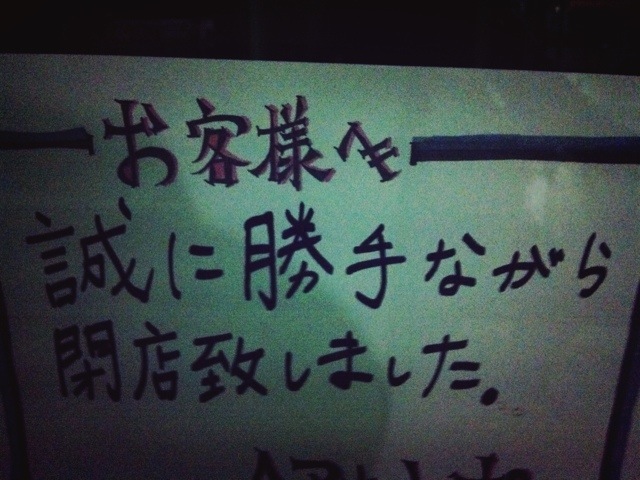 お客様へ
誠に勝手ながら
閉店致しました。